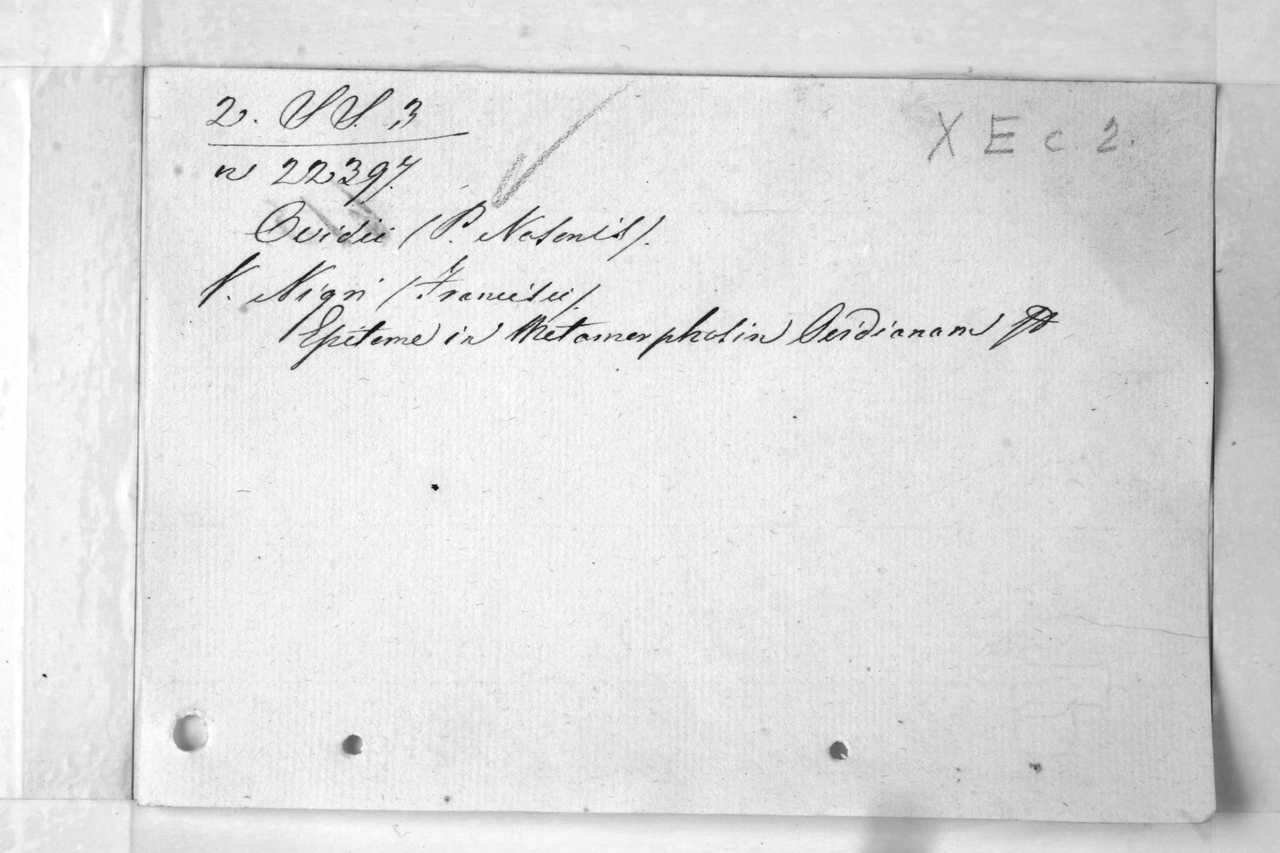 2. SS. 3
X E c. 2.
n 22397.
Ovidii (P. Nasonis).
V. Nigri (Francisci)
Epitome in Metamorphosin Ovidianam